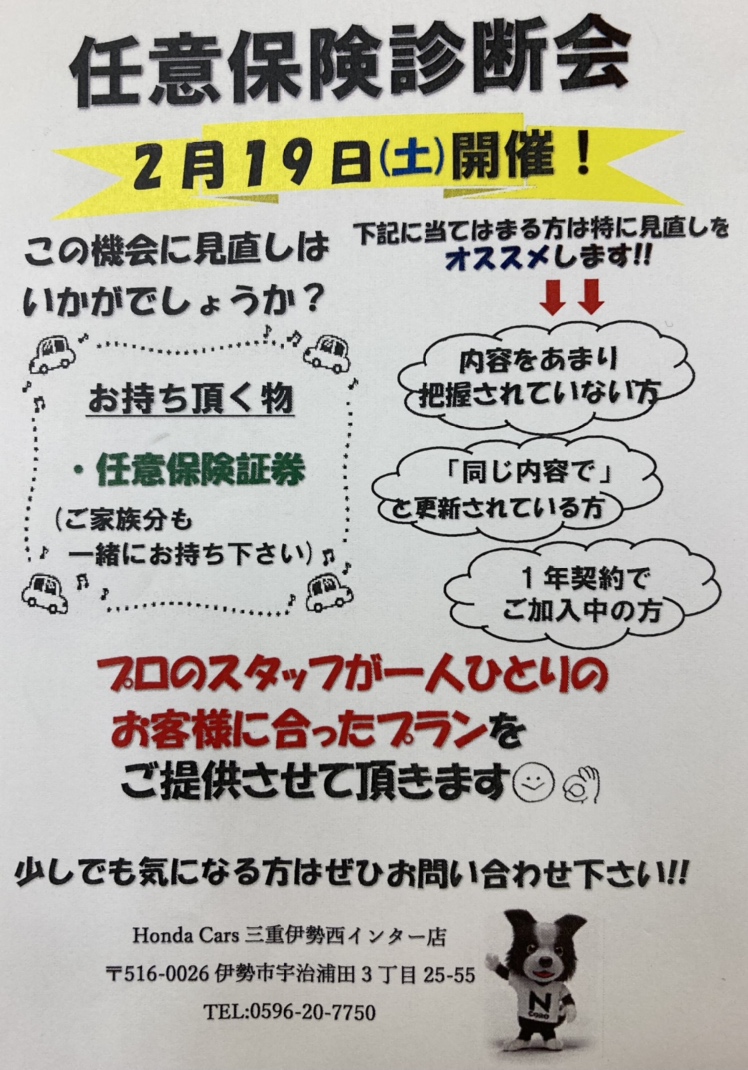 任意保険診断会
2月19日(土)開催！
この機会に見直しは
いかがでしょうか？
お持ち頂く物
・任意保険証券
（ご家族分も
一緒にお持ち下さい）
下記に当てはまる方は特に見直しを
オススメします!!
内容をあまり
把握されていない方
「同じ内容で」
と更新されている方
１年契約で
ご加入中の方
プロのスタッフが一人ひとりの
お客様に合ったプランを
ご提供させて頂きます
少しでも気になる方はぜひお問い合わせ下さい!!
Honda Cars 三重伊勢西インター店
〒516-0026 伊勢市宇治浦田 3 丁目 25-55
TEL:0596-20-7750
N